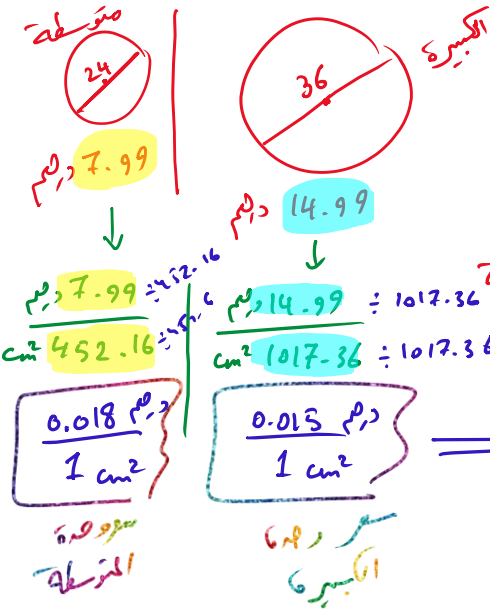 متوسطة
24
7.99 درهم
7.99 درهم ÷ 452.16
452.16 cm² ÷ 452.16
0.018 درهم
1 cm²
سعر وحدة
المتوسطة
الكبيرة
36
14.99 درهم
14.99 درهم ÷ 1017.36
1017.36 cm² ÷ 1017.36
0.015 درهم
1 cm²
سعر وحدة
الكبيرة